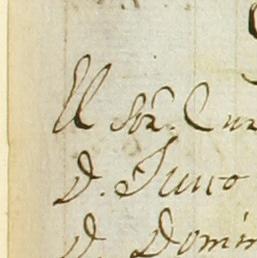 El Sõr. Cur
D. Justo
D. Domin